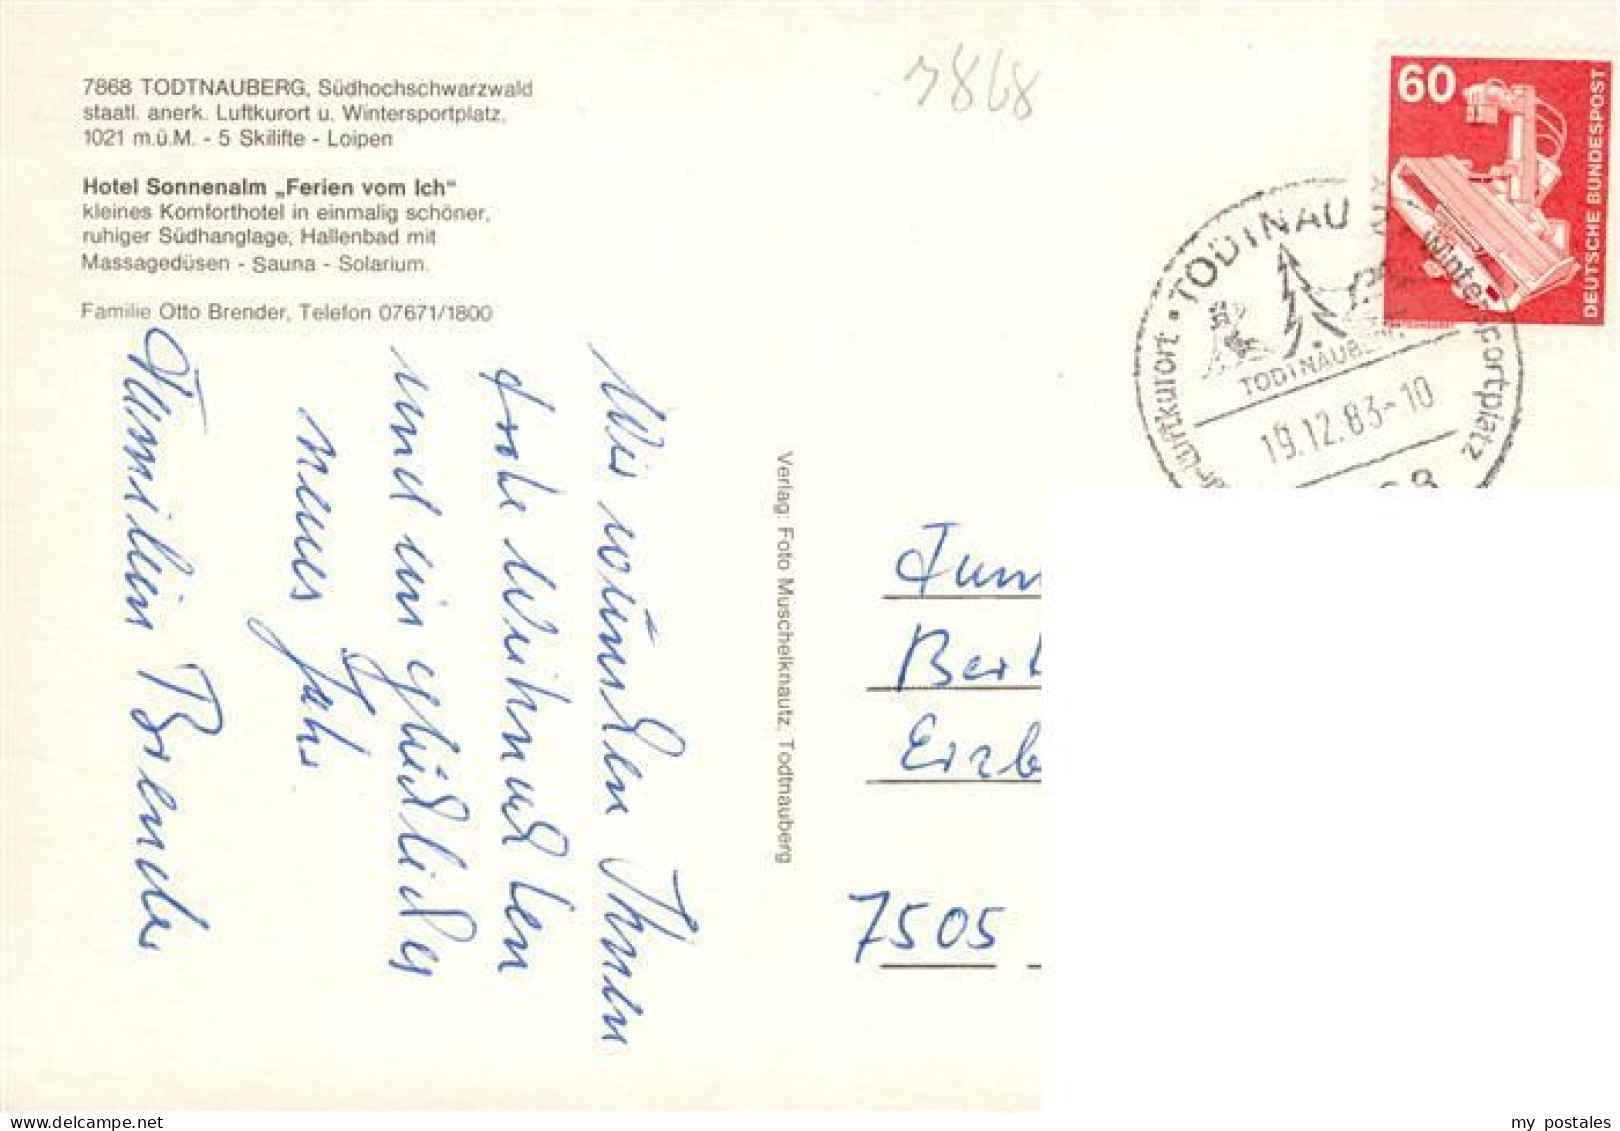 7868 TODTNAUBERG, Südhochschwarzwald
staatl. anerk. Luftkurort u. Wintersportplatz,
1021 m.ü.M. - 5 Skilifte - Loipen
Hotel Sonnenalm „Ferien vom Ich“
kleines Komforthotel in einmalig schöner,
ruhiger Südhanglage, Hallenbad mit
Massagedüsen - Sauna - Solarium.
Familie Otto Brender, Telefon 07671/1800
Wir wünschen Ihnen
frohe Weihnachten
und ein glückliches
neues Jahr
Familie Brender
Verlag: Foto Muschelknautz, Todtnauberg
7868
60
DEUTSCHE BUNDESPOST
TODTNAU
Wintersportplatz
Luftkurort
TODTNAUBERG
19.12.83-10
Fam
Bert
Erzb
7505
my postales